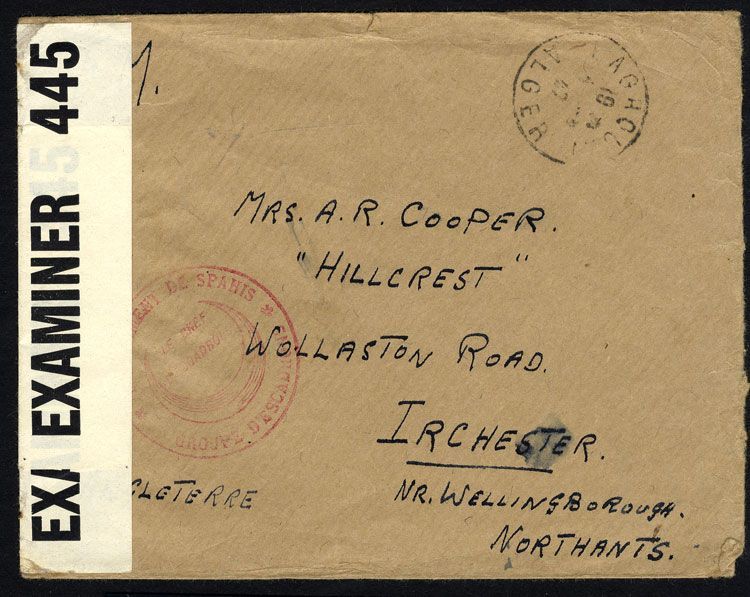 EXAMINER 445
LAGHOU
ALGER
MRS. A. R. COOPER.
"HILLCREST"
WOLLASTON ROAD.
IRCHESTER.
NR. WELLINGBOROUGH.
NORTHANTS.
CLETERRE
MENT DE SPAHIS * GROUPE D'ESCADRONS *
LE CHEF